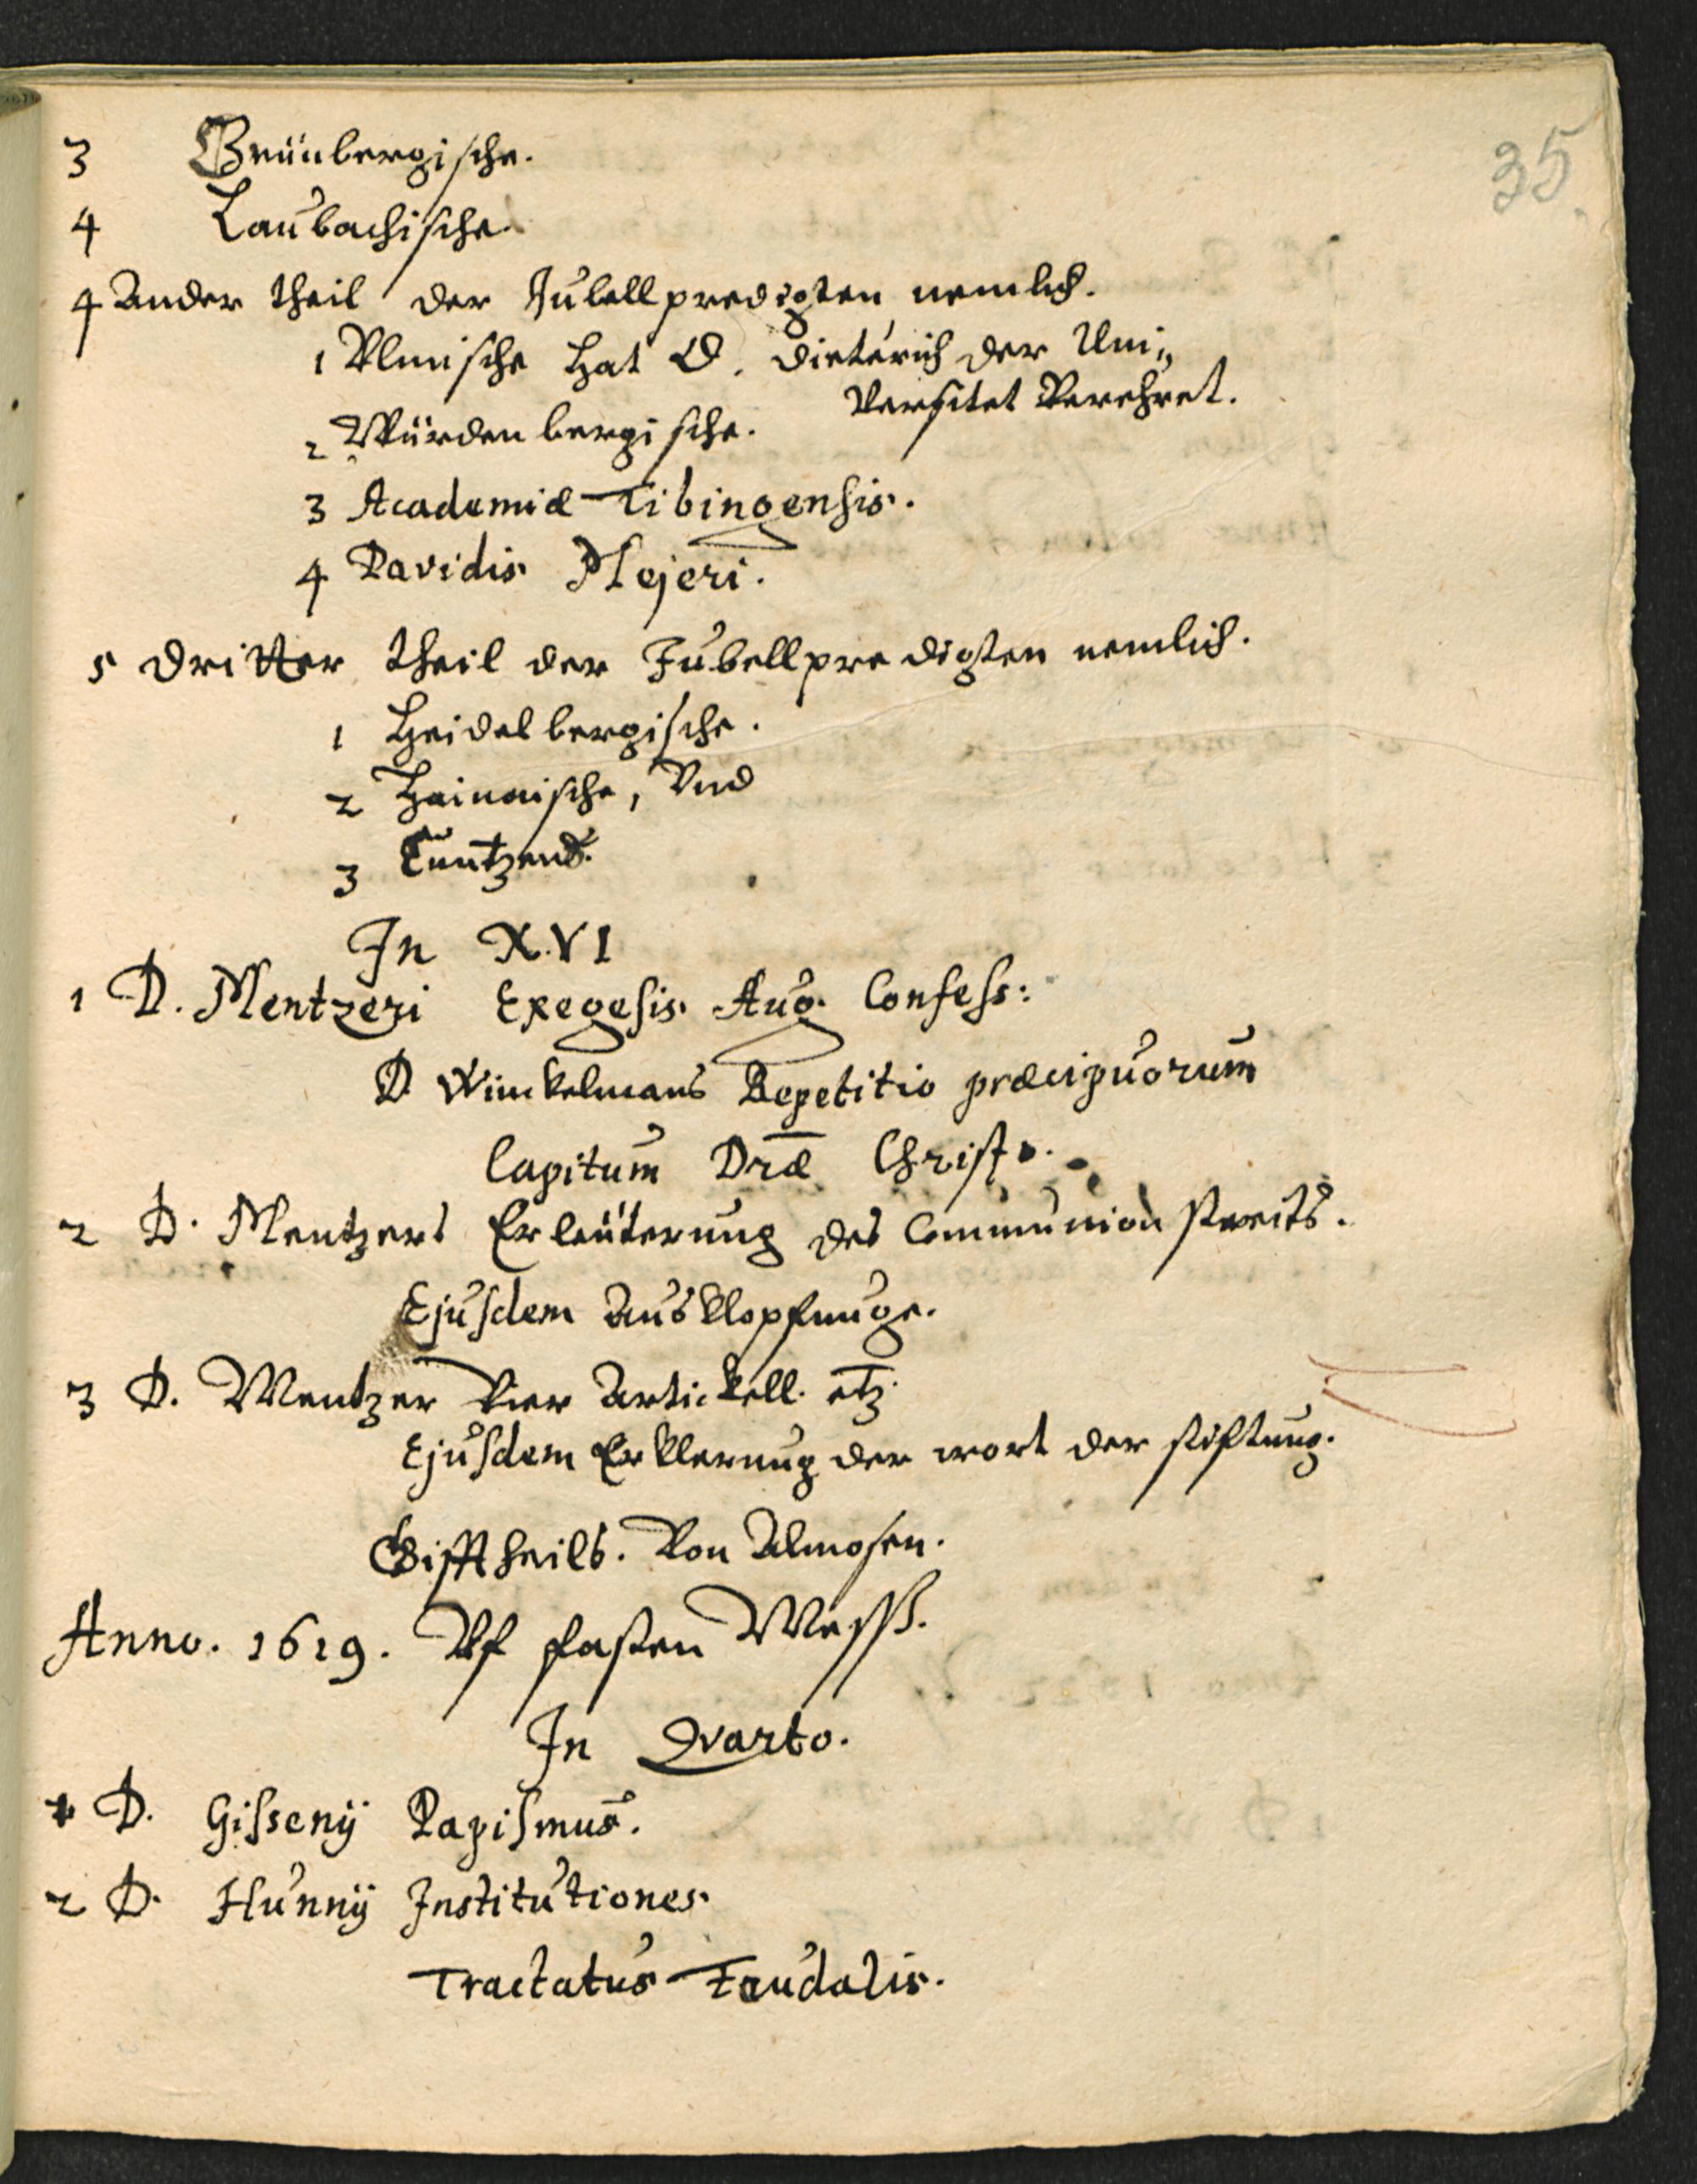 35
3 Grünbergische.
4 Laubachische
4 Ander theil der Jubellpredigten nemlich.
1 Vlmische hat D. Dieterich der Uni„
versitet verehret.
2 Würdenbergische.
3 Academiæ Tibingensis.
4 Davidis Mejeri.
5 Dritter theil der Jubellpredigten nemlich.
1 Heidelbergische.
2 Hainaische, Vnd
3
In XVI
1 D. Mentzeri Exegesis Aug. Confess:
D Winckelmans Repetitio præcipuorum
Capitum Dræ Christ.
2 D. Mentzers Erleüterung des Communion streits.
Ejusdem Ausklopfunge.
3 D. Mentzer Vier Artickell. etz.
Ejusdem Erklerung der wort der stifftung.
Giftheils. Von Almosen.
Anno. 1619. Vf fasten Messß.
In Qvarto.
1 D. Gissenij Papismus.
2 D. Hunnij Institutiones.
Tractatus Feudalis.